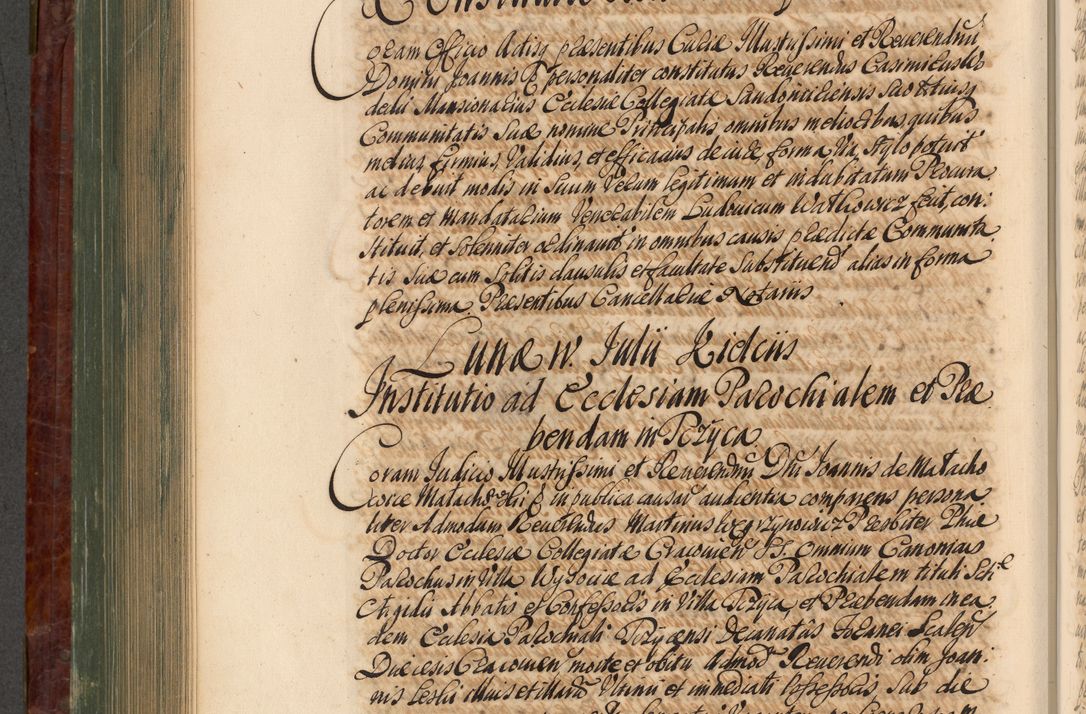 Coram Officio Actisq præsentibus Curiæ Illustrissimi et Reverendissi
Domini Joannis E personaliter constitutus Reverendus Casimirus
Mansionarius Ecclesiæ Collegiatæ Sandomiriensis suo et
Communitatis suæ nomine Principalis omnibus melioribus, quibus
melius, firmius, validius, et efficacius de iure, forma, via, stylo potuit
ac debuit modis in suum verum legitimum et indubitatum Procura
torem et mandatarium Venerabilem Ludovicum Walkowicz fecit, con:
stituit, et solenniter ordinavit in omnibus causis prædictæ Communita
tis suæ cum solitis clausulis et facultate substituend alias in forma
plenissima. Præsentibus Cancellariæ Notariis
Lunæ iv. Julii Kielciis
Institutio ad Ecclesiam Parochialem et Præ
bendam in Tczyca
Coram Judicio Illustrissimi et Reverendmi Dni Joannis de Matacho
wice Matachowski E in publica causar audientia comparens persona
liter Admodum Reverendus Martinus Węgrzynowicz Præsbiter Phiæ
Doctor Ecclesiæ Collegiatæ Cracovien SS. Omnium Canonicus
Parochus in Villa Wysocice ad Ecclesiam Parochialem tituli Scti
Ægidii Abbatis et Confessoris in Villa Tczyca et Præbendam in ea
dem Ecclesia Parochiali Tczycensi Decanatûs Foranei Scalen
Diæcesis Cracovien morte et obitu Admod Reverendi olim Joan:
nis ultimi et immediati Possessoris, sub die